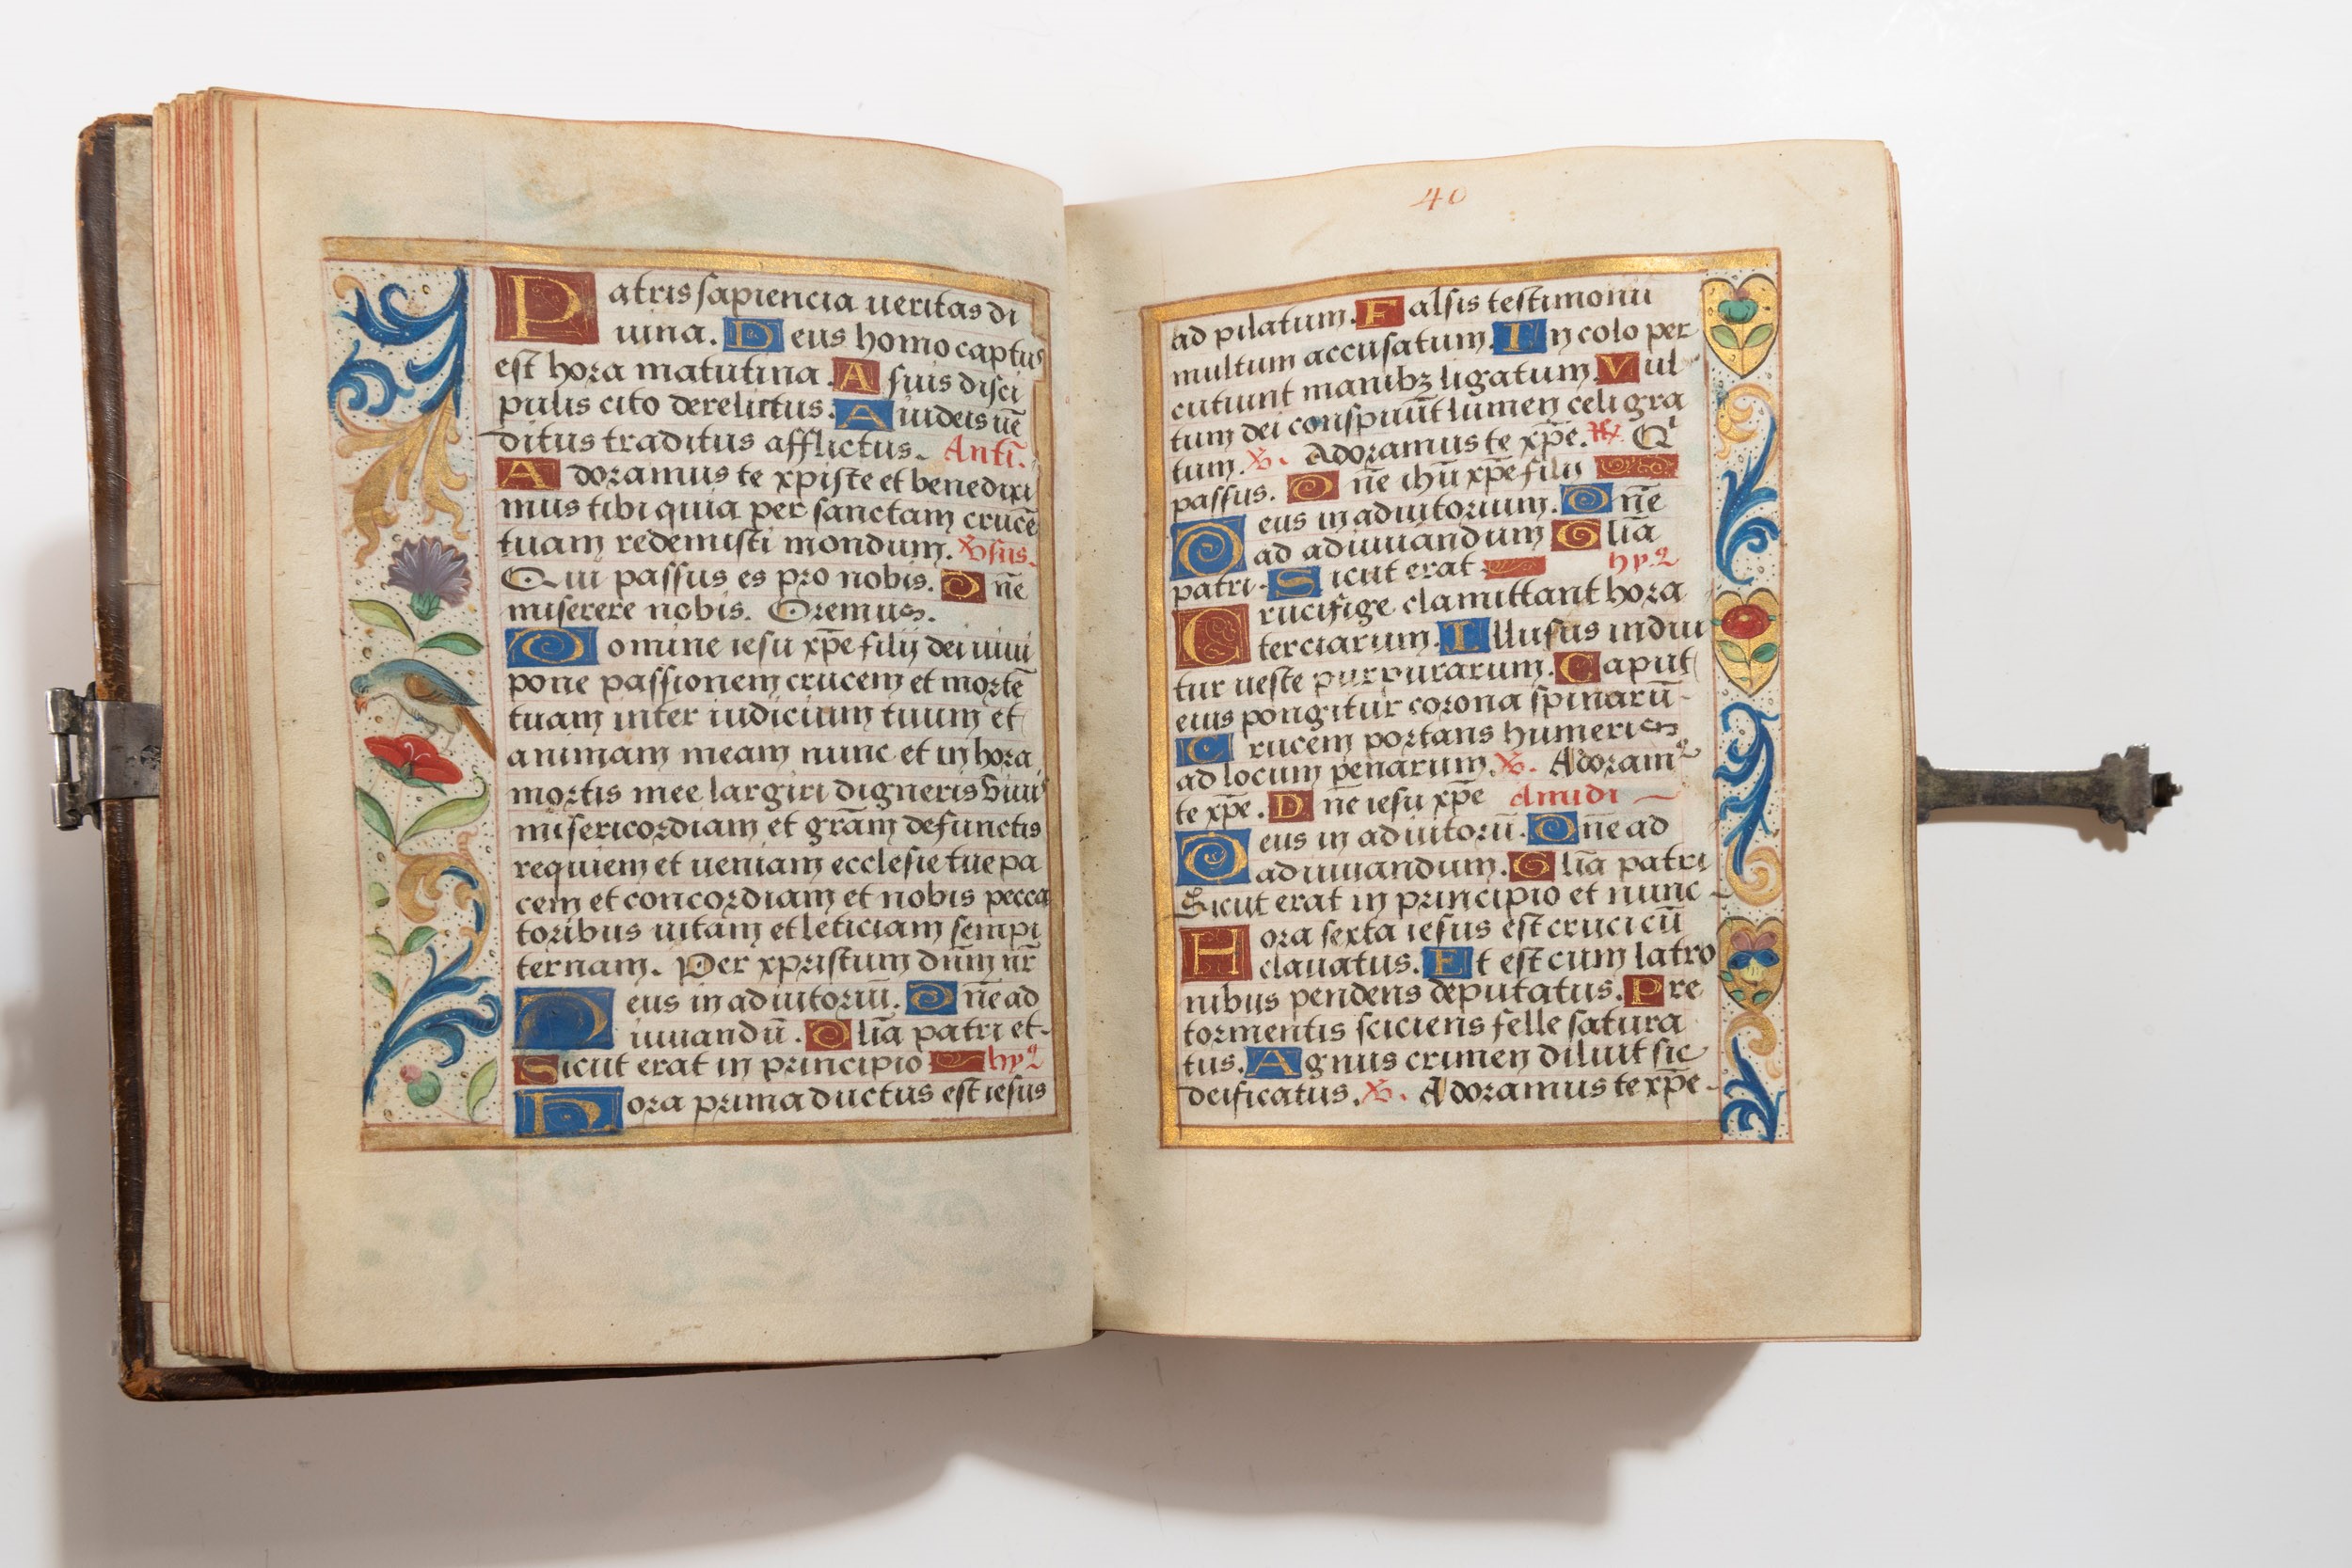 Patris sapiencia ueritas di
uina. Deus homo captus
est hora matutina. A suis disci
pulis cito derelictus. A iudeis uē
ditus traditus afflictus. Antī.
Adoramus te xpiste et benedixi
mus tibi quia per sanctam crucē
tuam redemisti mondum. ℣sus.
Qui passus es pro nobis. Dn̄e
miserere nobis. Oremus.
Domine iesu xp̄e filij dei uiui
pone passionem crucem et mortē
tuam inter iudicium tuum et
animam meam nunc et in hora
mortis mee largiri digneris viuis
misericordiam et grām defunctis
requiem et ueniam ecclesie tue pa
cem et concordiam et nobis pecca
toribus uitam et leticiam sempi
ternam. Per xpristum dūm nr̄
Deus in adiutoriū. Dn̄e ad
iuuandū. Glīa patri et
Sicut erat in principio hyꝰ
Hora prima ductus est iesus
40
ad pilatum. Falsis testimonii
multum accusatum. In colo per
cutiunt manibꝫ ligatum. Vul
tum dei conspuūt lumen celi gra
tum. ℣. Adoramus te xp̄e. ℟ Qi
passus. Dn̄e ihū xp̄e filii
Deus in adiutorium. Dn̄e
ad adiuuandum Glīa
patri. Sicut erat hyꝰ
Crucifige clamittant hora
terciarum. Illusus indui
tur ueste purpurarum. Caput
eius pongitur corona spinarū
Crucem portans humeris
ad locum penarum. ℣. Adoramꝰ
te xpe. Dn̄e iesu xp̄e Amidi
Deus in adiutoriū. Dn̄e ad
adiuuandum. Glīa patri
Sicut erat in principio et nunc
Hora sexta iesus est cruci cū
clauatus. Et est cum latro
nibus pendens deputatus. Pre
tormentis sciciens felle satura
tus. Agnus crimen diluit sic
deificatus. ℣. Adoramus te xp̄e